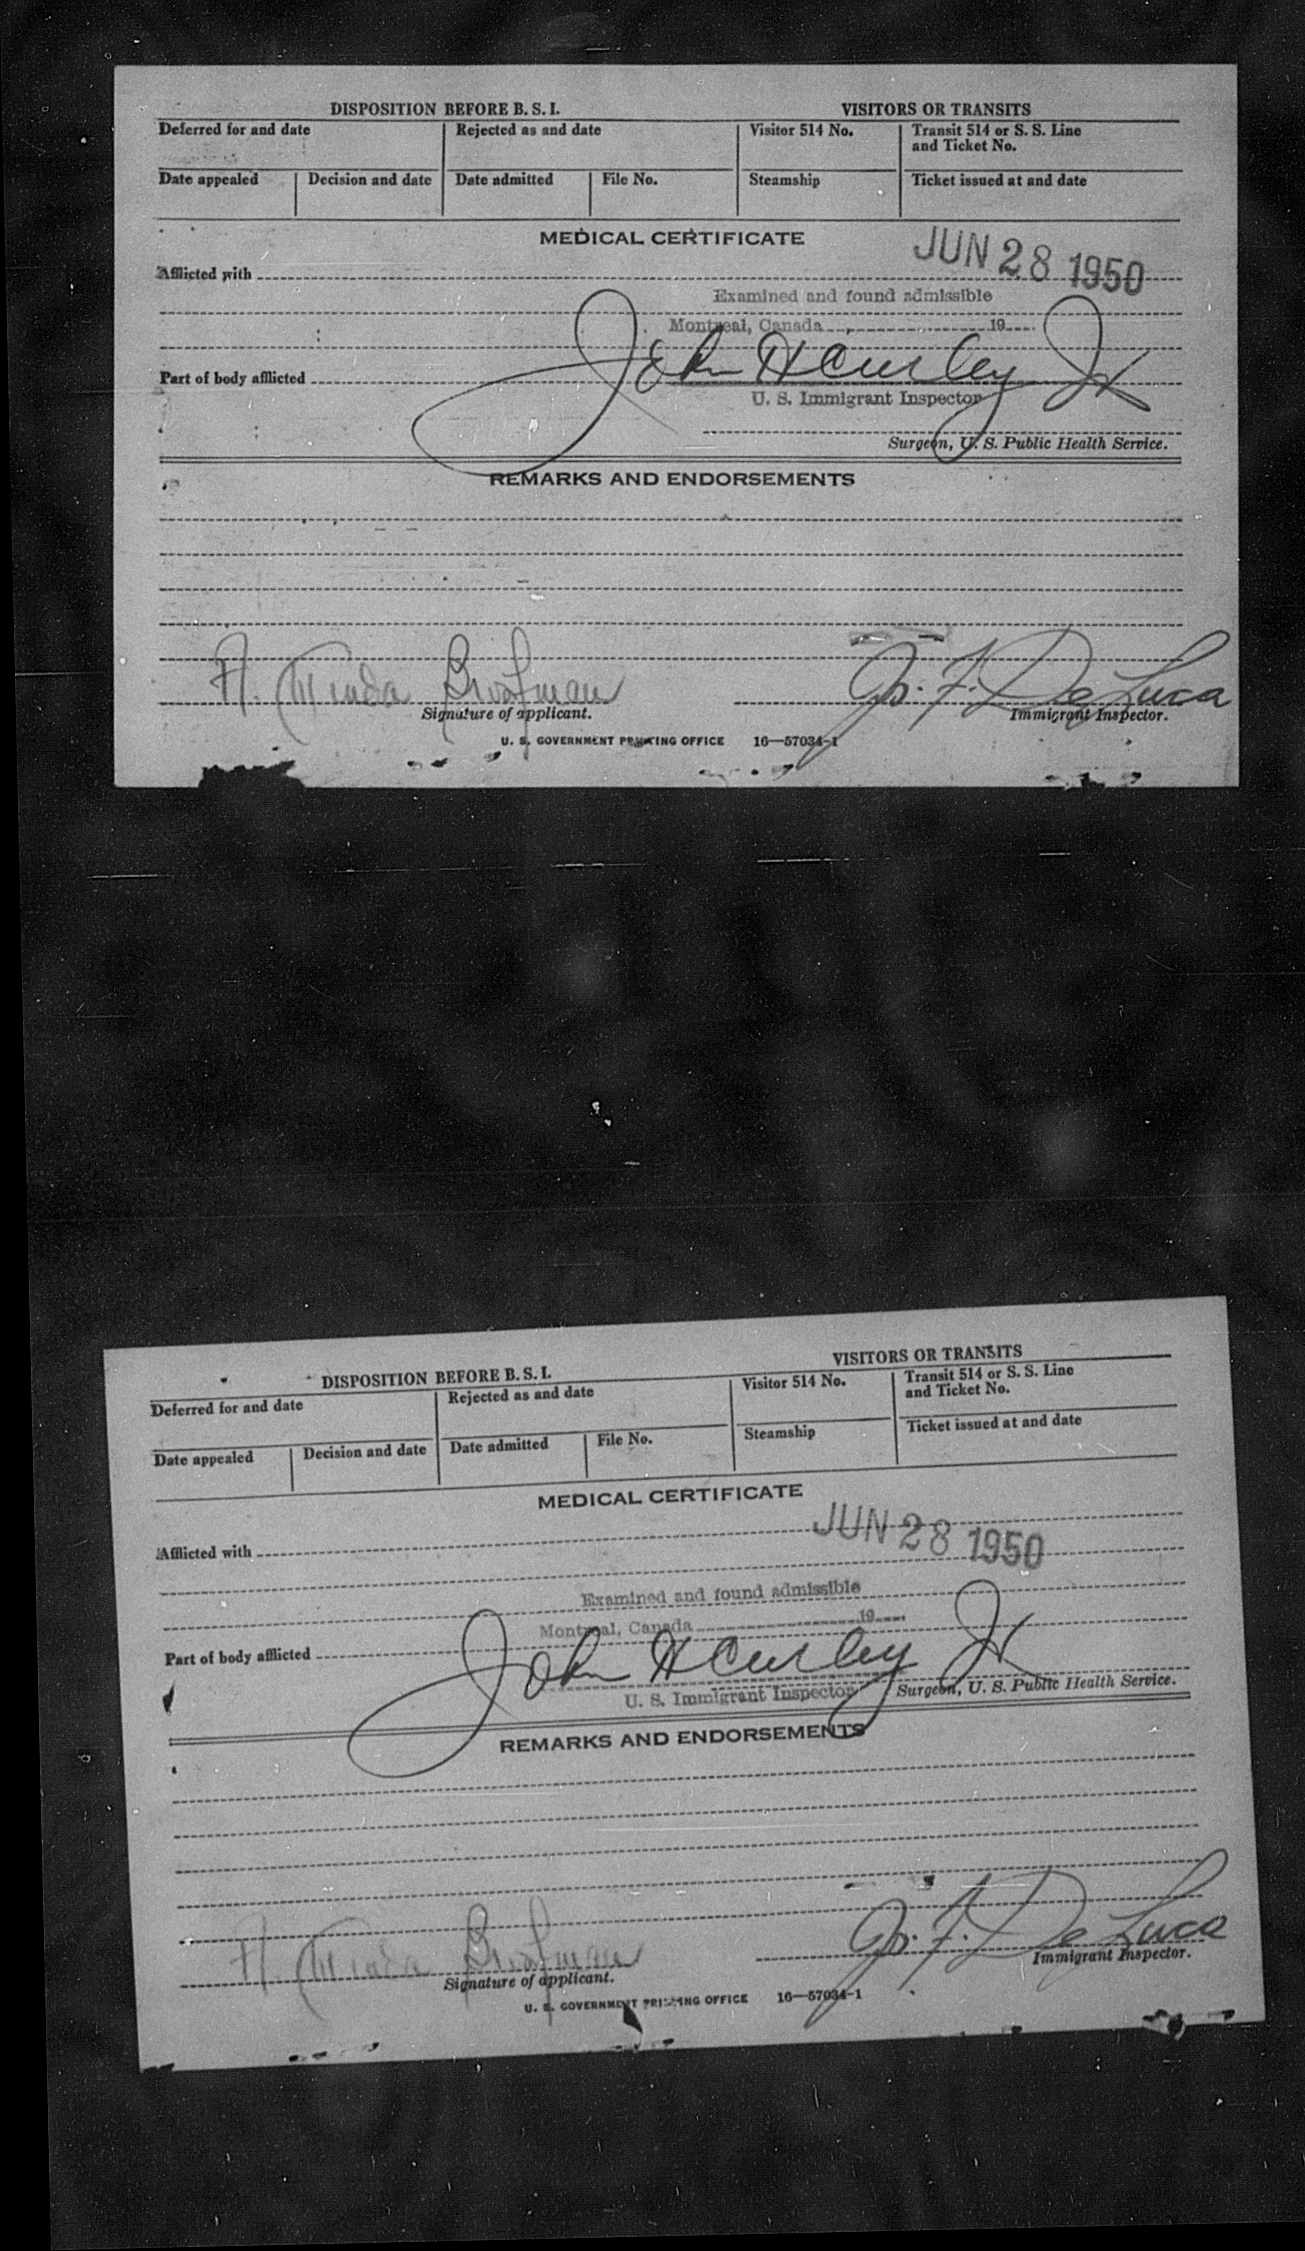 DISPOSITION BEFORE B. S. I. VISITORS OR TRANSITS
Deferred for and date Rejected as and date Visitor 514 No. Transit 514 or S. S. Line and Ticket No.
Date appealed Decision and date Date admitted File No. Steamship Ticket issued at and date
MEDICAL CERTIFICATE
JUN 28 1950
Afflicted with
Examined and found admissible
Montreal, Canada 19
John H Curley Jr
Part of body afflicted
U. S. Immigrant Inspector
Surgeon, U. S. Public Health Service.
REMARKS AND ENDORSEMENTS
A. Minda
Jos. F. De Luca
Signature of applicant. Immigrant Inspector.
U. S. GOVERNMENT PRINTING OFFICE 16—57034-1
DISPOSITION BEFORE B. S. I. VISITORS OR TRANSITS
Deferred for and date Rejected as and date Visitor 514 No. Transit 514 or S. S. Line and Ticket No.
Date appealed Decision and date Date admitted File No. Steamship Ticket issued at and date
MEDICAL CERTIFICATE
JUN 28 1950
Afflicted with
Examined and found admissible
Montreal, Canada 19
John H Curley Jr
Part of body afflicted
U. S. Immigrant Inspector
Surgeon, U. S. Public Health Service.
REMARKS AND ENDORSEMENTS
A. Minda
Jos. F. De Luca
Signature of applicant. Immigrant Inspector.
U. S. GOVERNMENT PRINTING OFFICE 16—57034-1